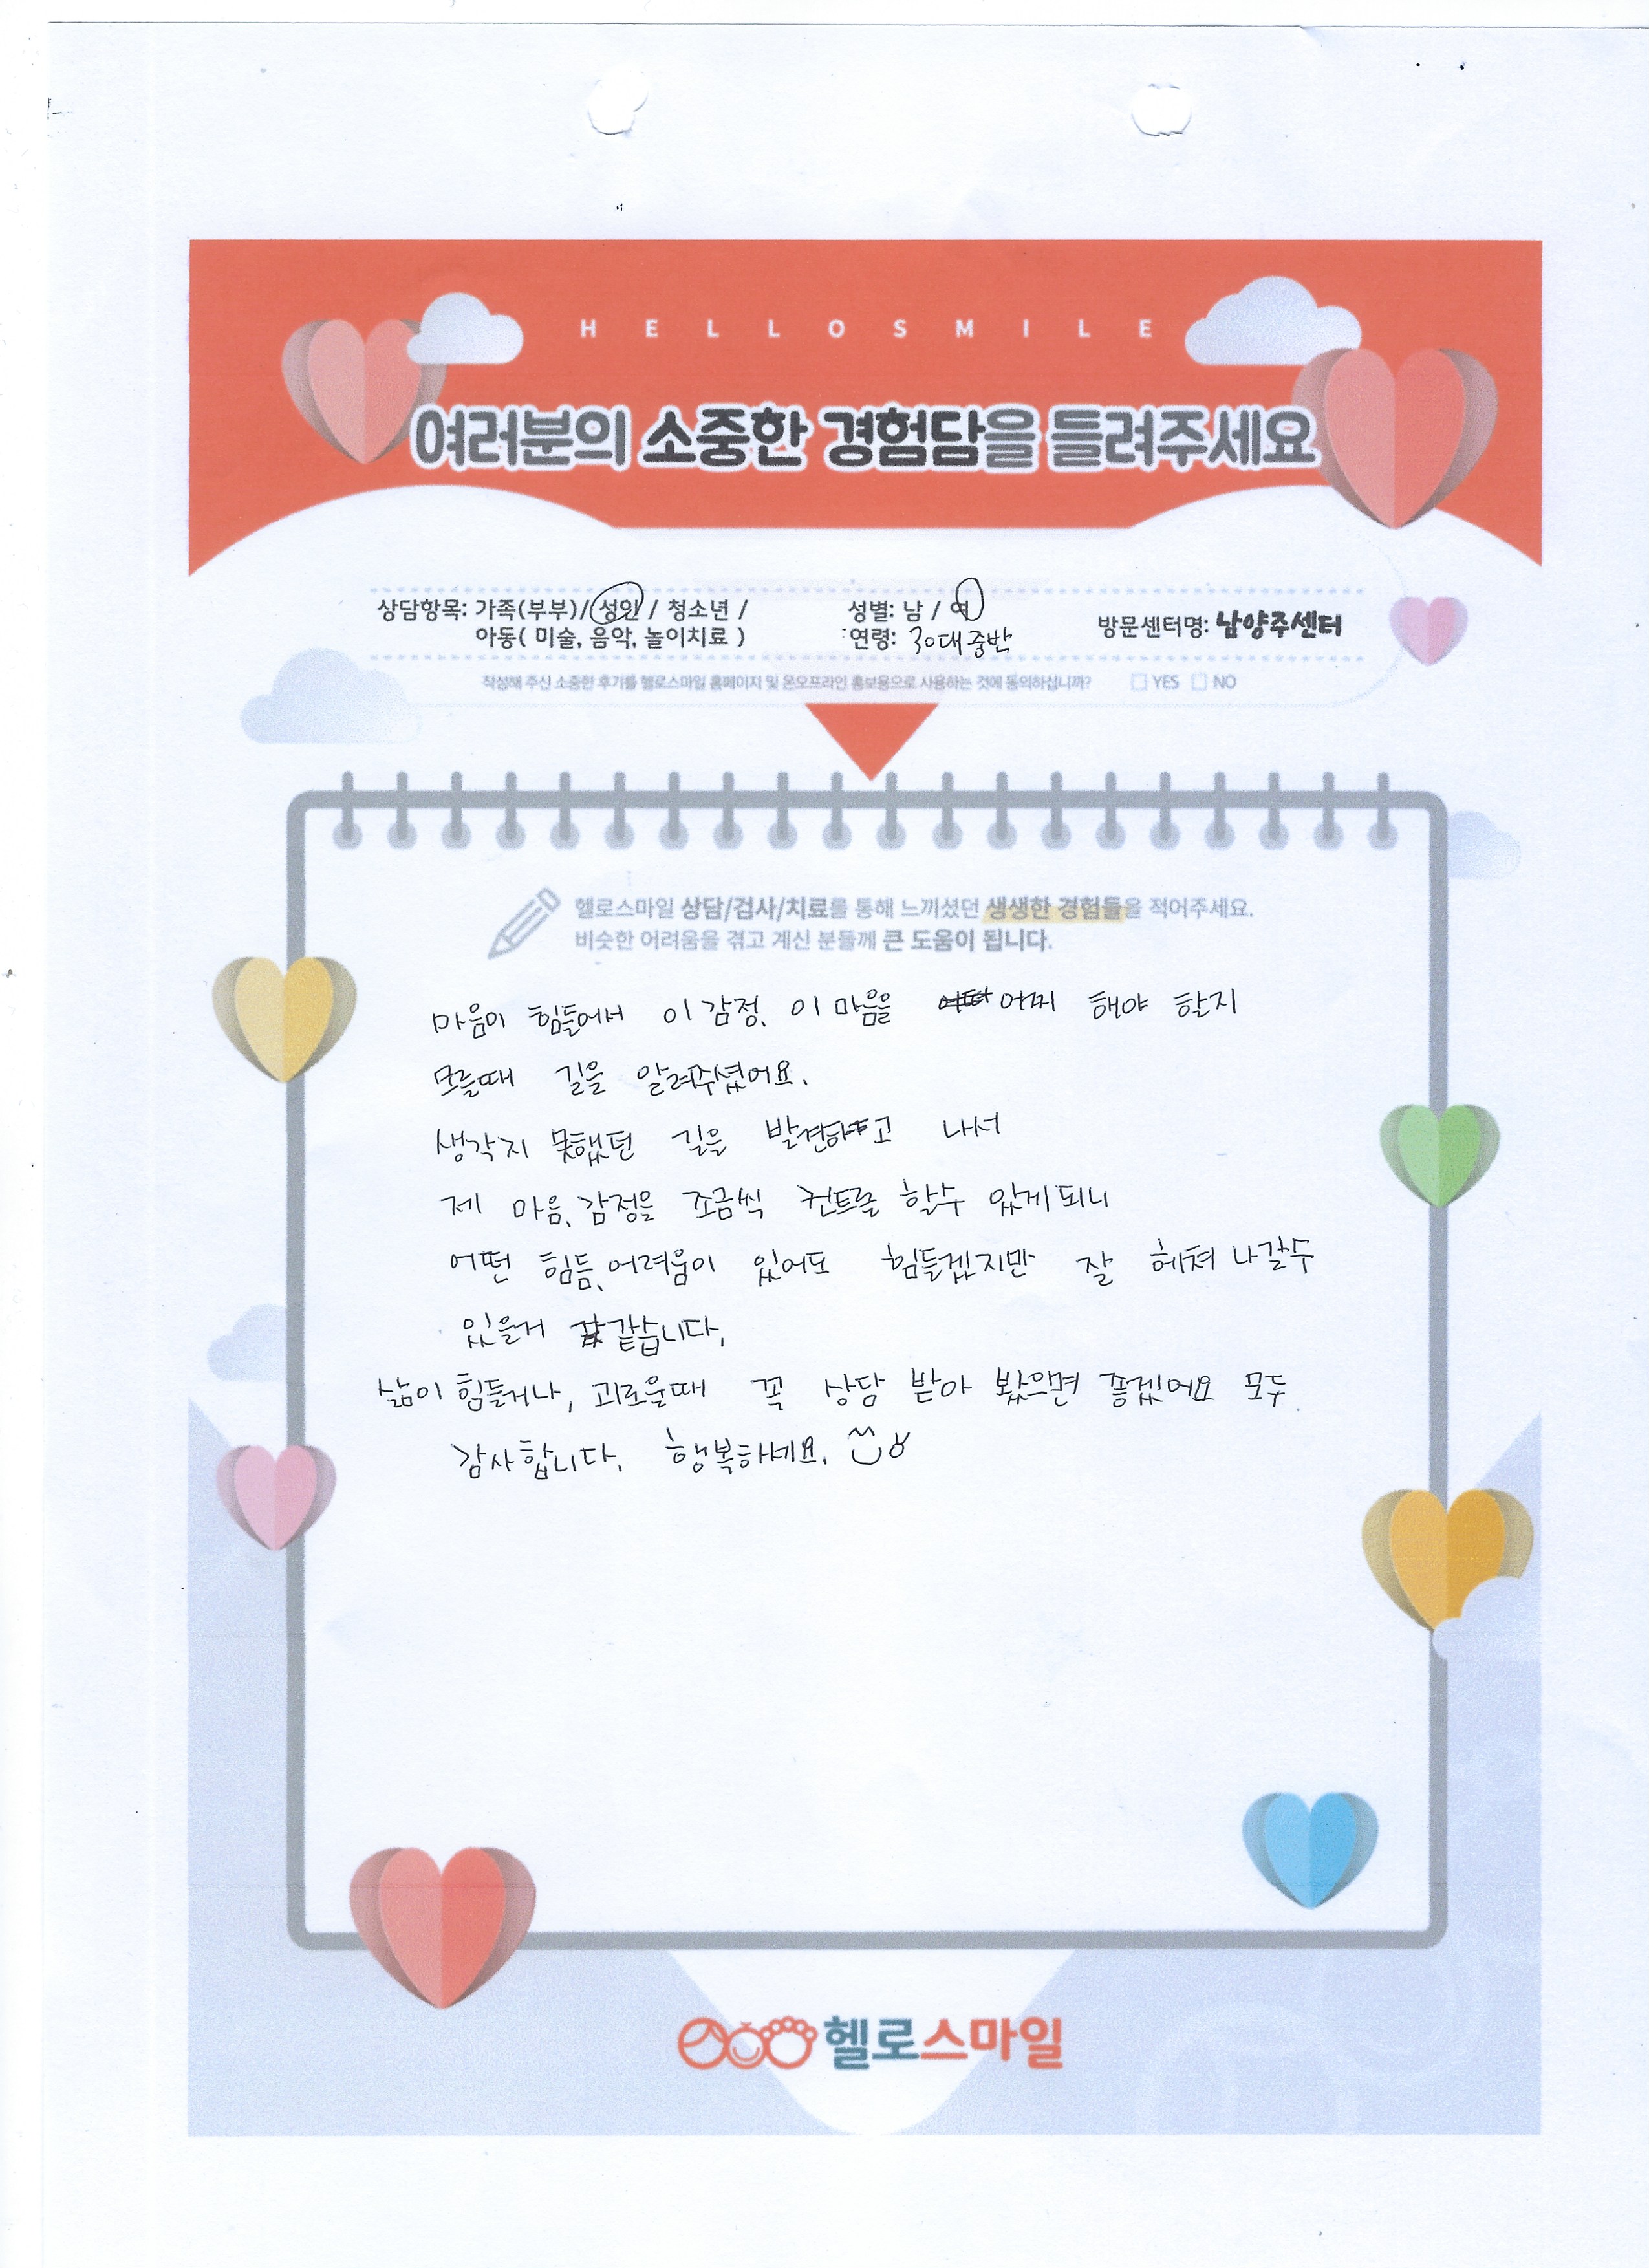 HELLOSMILE
여러분의 소중한 경험담을 들려주세요
상담항목: 가족(부부)/ 성인 / 청소년 /
아동( 미술, 음악, 놀이치료 )
성별: 남 / 여
연령: 30대 중반
방문센터명: 남양주센터
작성해 주신 소중한 후기를 헬로스마일 홈페이지 및 온오프라인 홍보용으로 사용하는 것에 동의하십니까? YES NO
헬로스마일 상담/검사/치료를 통해 느끼셨던 생생한 경험들을 적어주세요.
비슷한 어려움을 겪고 계신 분들께 큰 도움이 됩니다.
마음이 힘들어서 이 감정, 이 마음을 어찌 해야 할지
모를때 길을 알려주셨어요.
생각지 못했던 길을 발견하고 나서
제 마음, 감정을 조금씩 컨트롤 할수 있게되니
어떤 힘듬, 어려움이 있어도 힘들겠지만 잘 헤쳐 나갈수
있을거 같습니다.
삶이 힘들거나, 괴로울때 꼭 상담 받아 봤으면 좋겠어요 모두
감사합니다. 행복하세요.
헬로스마일